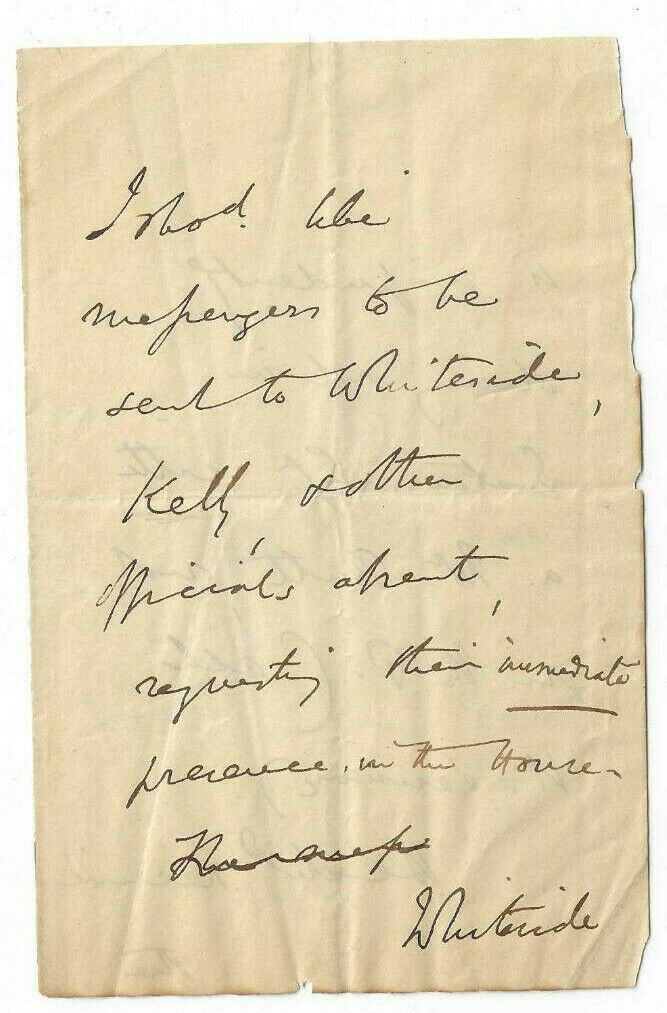 I shod. like
messengers to be
sent to Whiteside,
Kelly, & other
officials absent,
requesting their immediate
presence in the House -
Whiteside